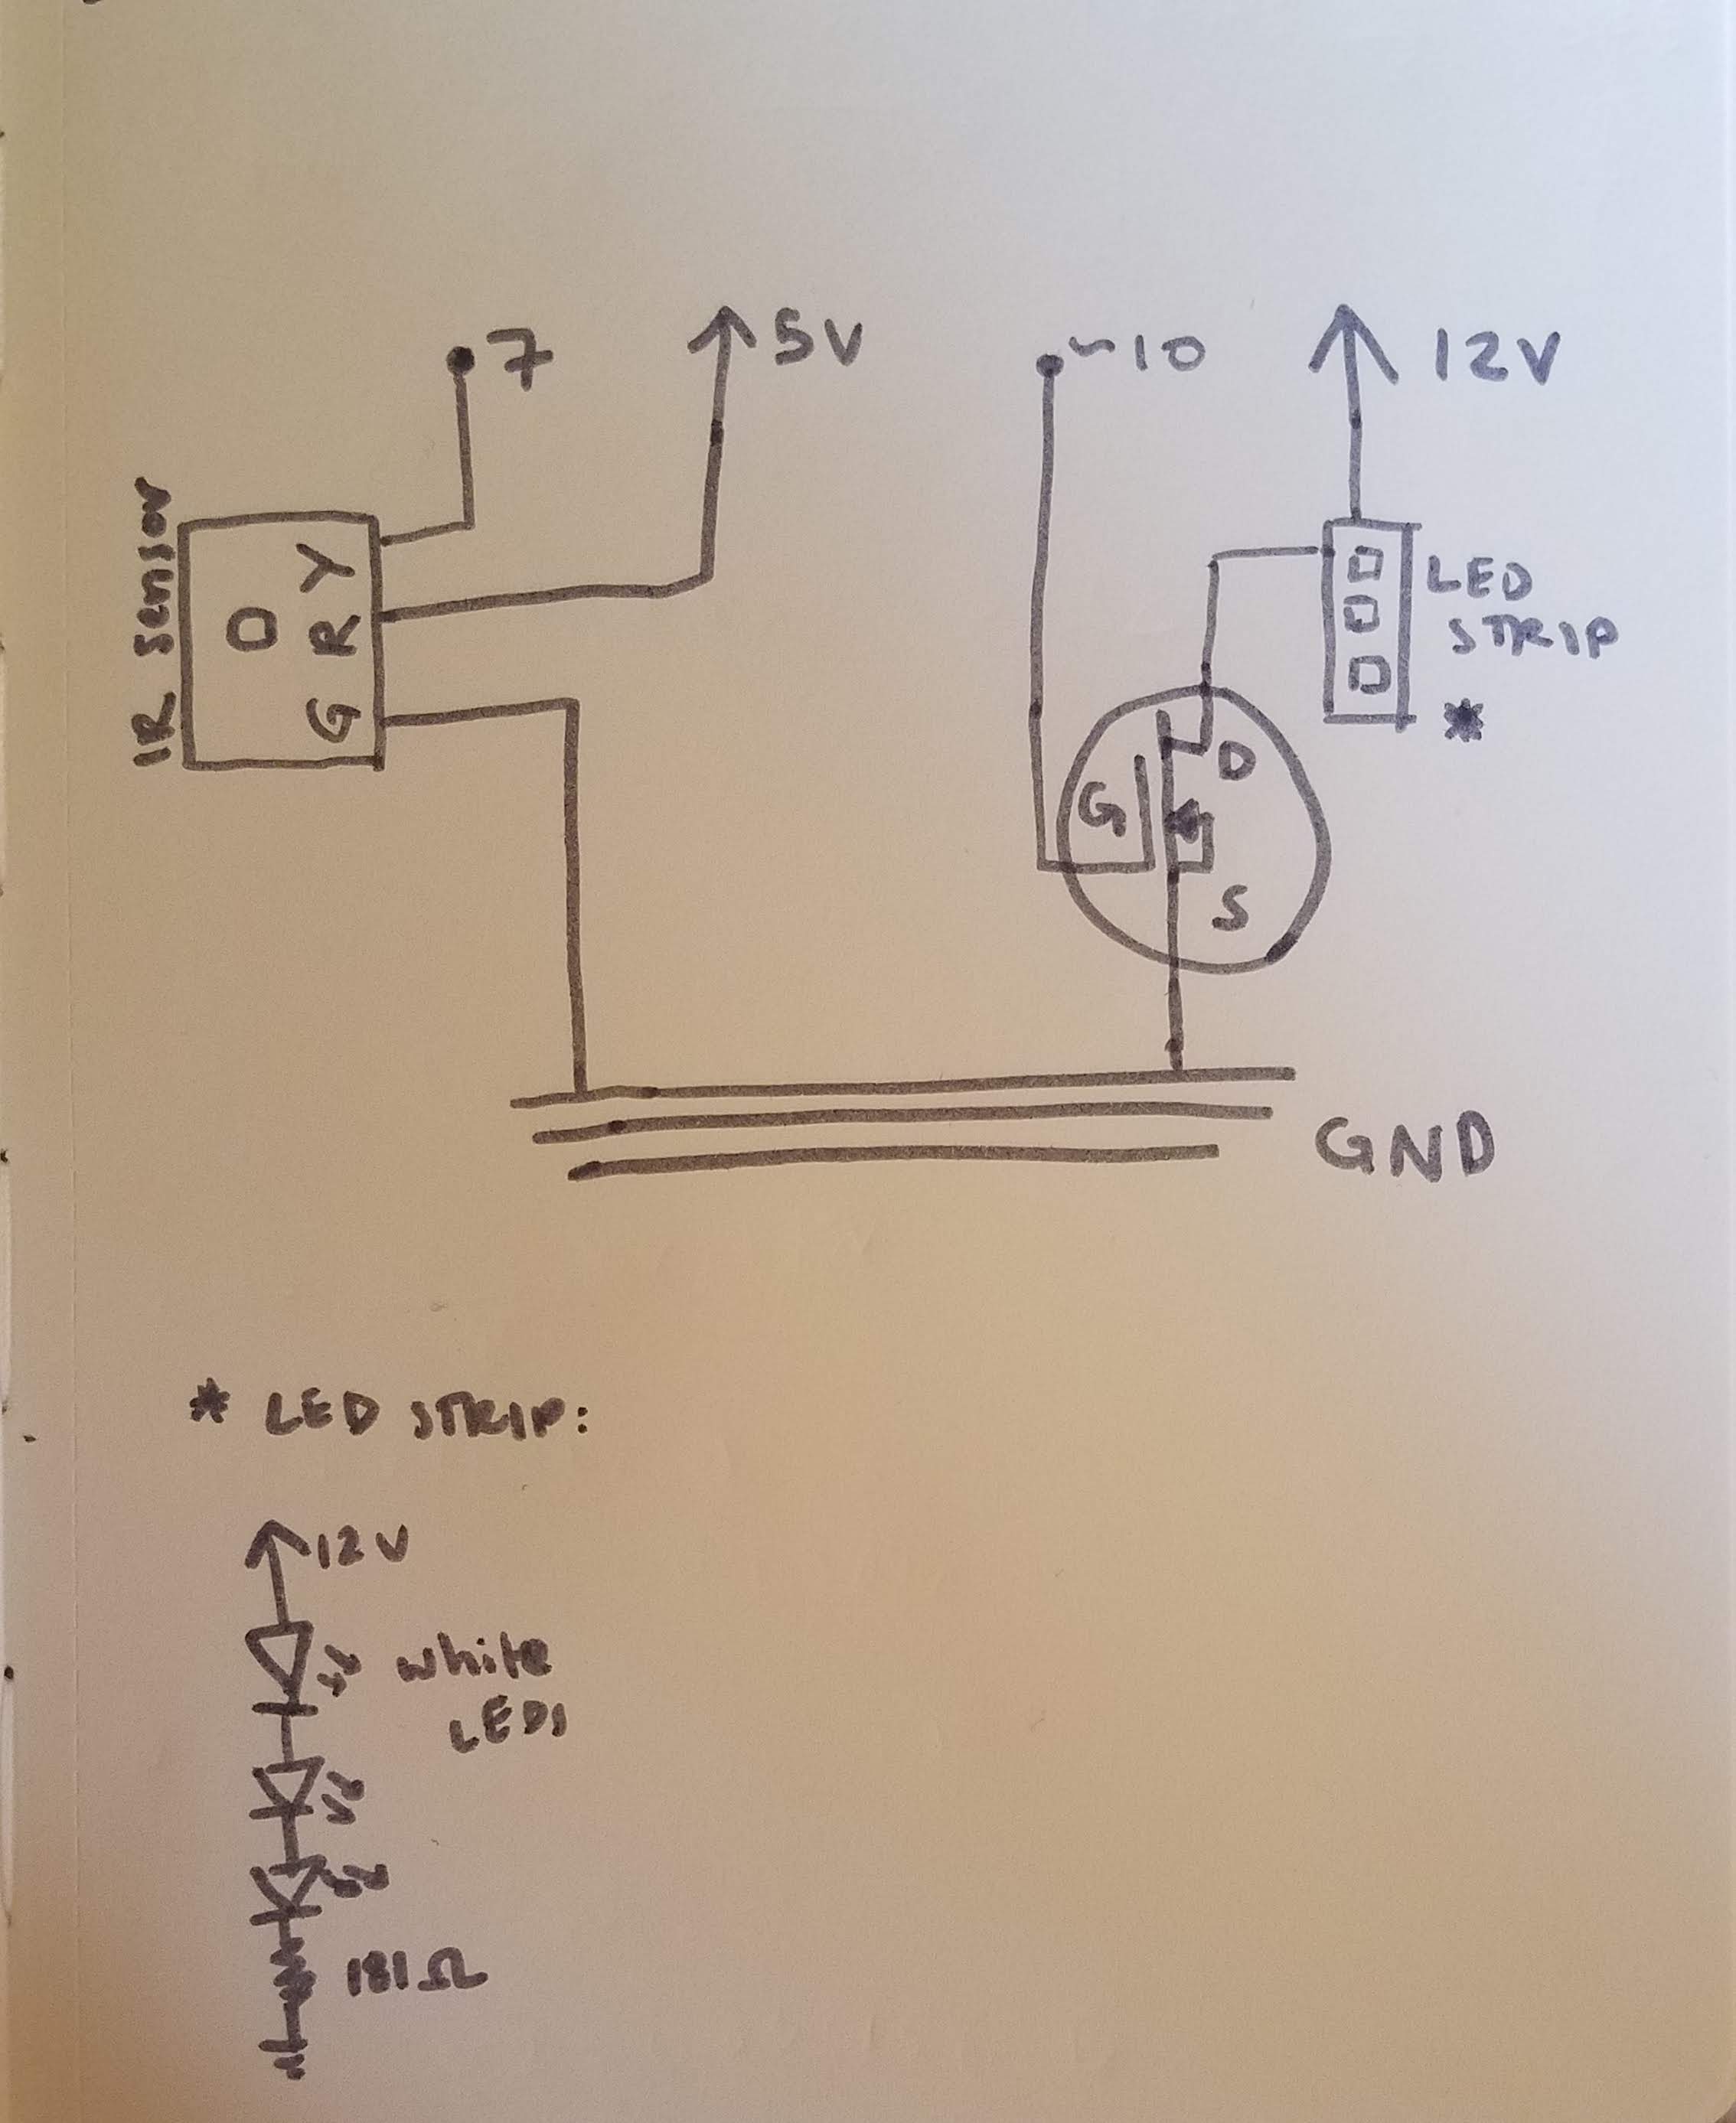 7
5V
~10
12V
IR Sensor
Y
R
G
LED
STRIP
*
D
G
S
GND
* LED STRIP:
12V
white
LEDs
181Ω